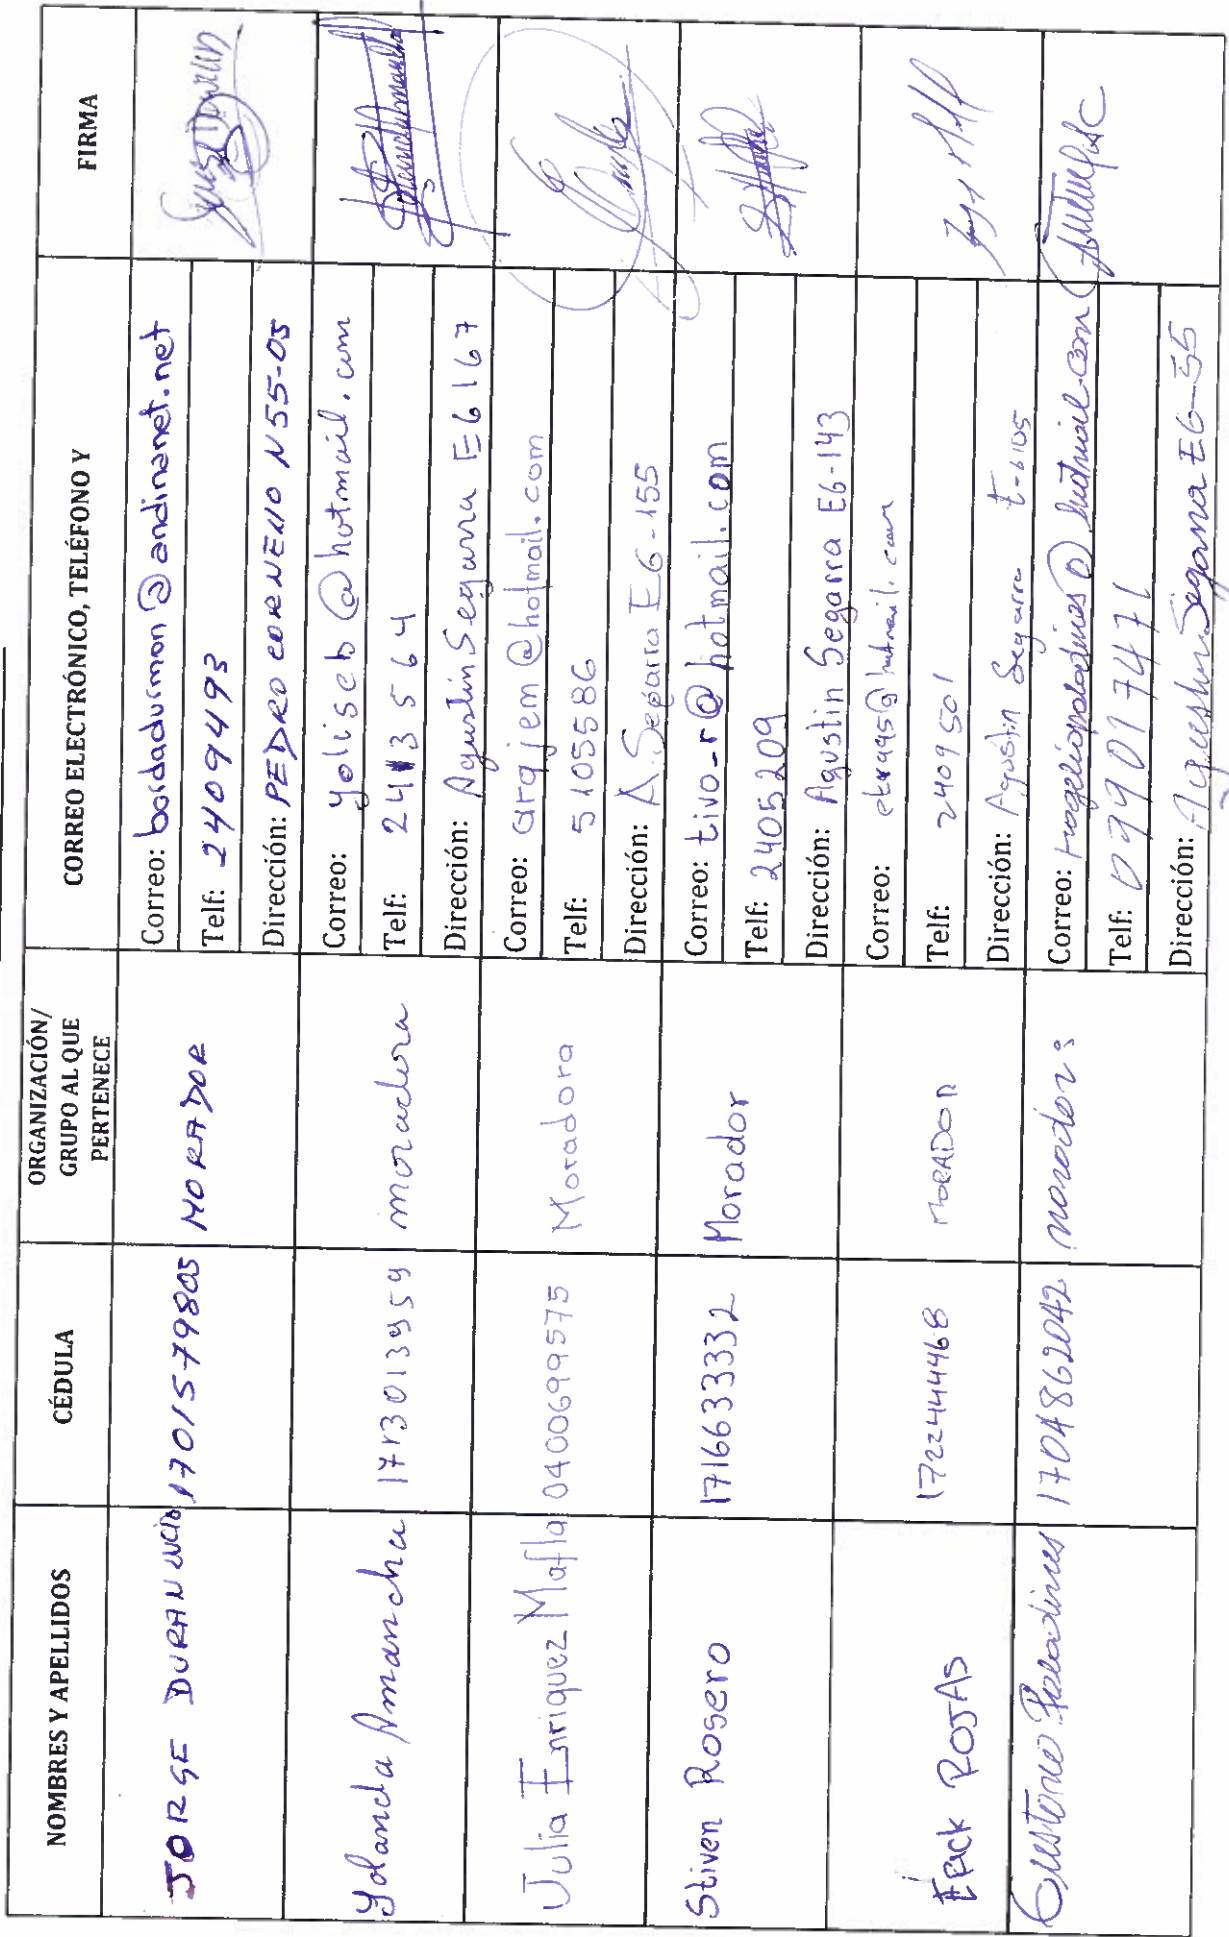 NOMBRES Y APELLIDOS
CÉDULA
ORGANIZACIÓN/
GRUPO AL QUE
PERTENECE
CORREO ELECTRÓNICO, TELÉFONO Y
FIRMA
JORGE DURAN
1701579805
MORADOR
Correo: bordadurmon@andinanet.net
Telf: 2409493
Dirección: PEDRO CORNENO N55-05
Yolanda Amancha
1713013959
moradora
Correo: yoliseb@hotmail.com
Telf: 2413564
Dirección: Agustin Segarra E6167
Julia Enriquez Mafla
0400699575
Moradora
Correo: arqjem@hotmail.com
Telf: 5105586
Dirección: A. Segarra E6-155
Stiven Rosero
1716633332
Morador
Correo: tivo-r@hotmail.com
Telf: 2405209
Dirección: Agustin Segarra E6-143
Erick ROJAS
1722444468
MORADOR
Correo: @hotmail.com
Telf: 2409501
Dirección: Agustin Segarra
Paladines
1704862042
morador
Correo: rogeliopaladines@hotmail.com
Telf: 099017471
Dirección: Agustin Segarra E6-55